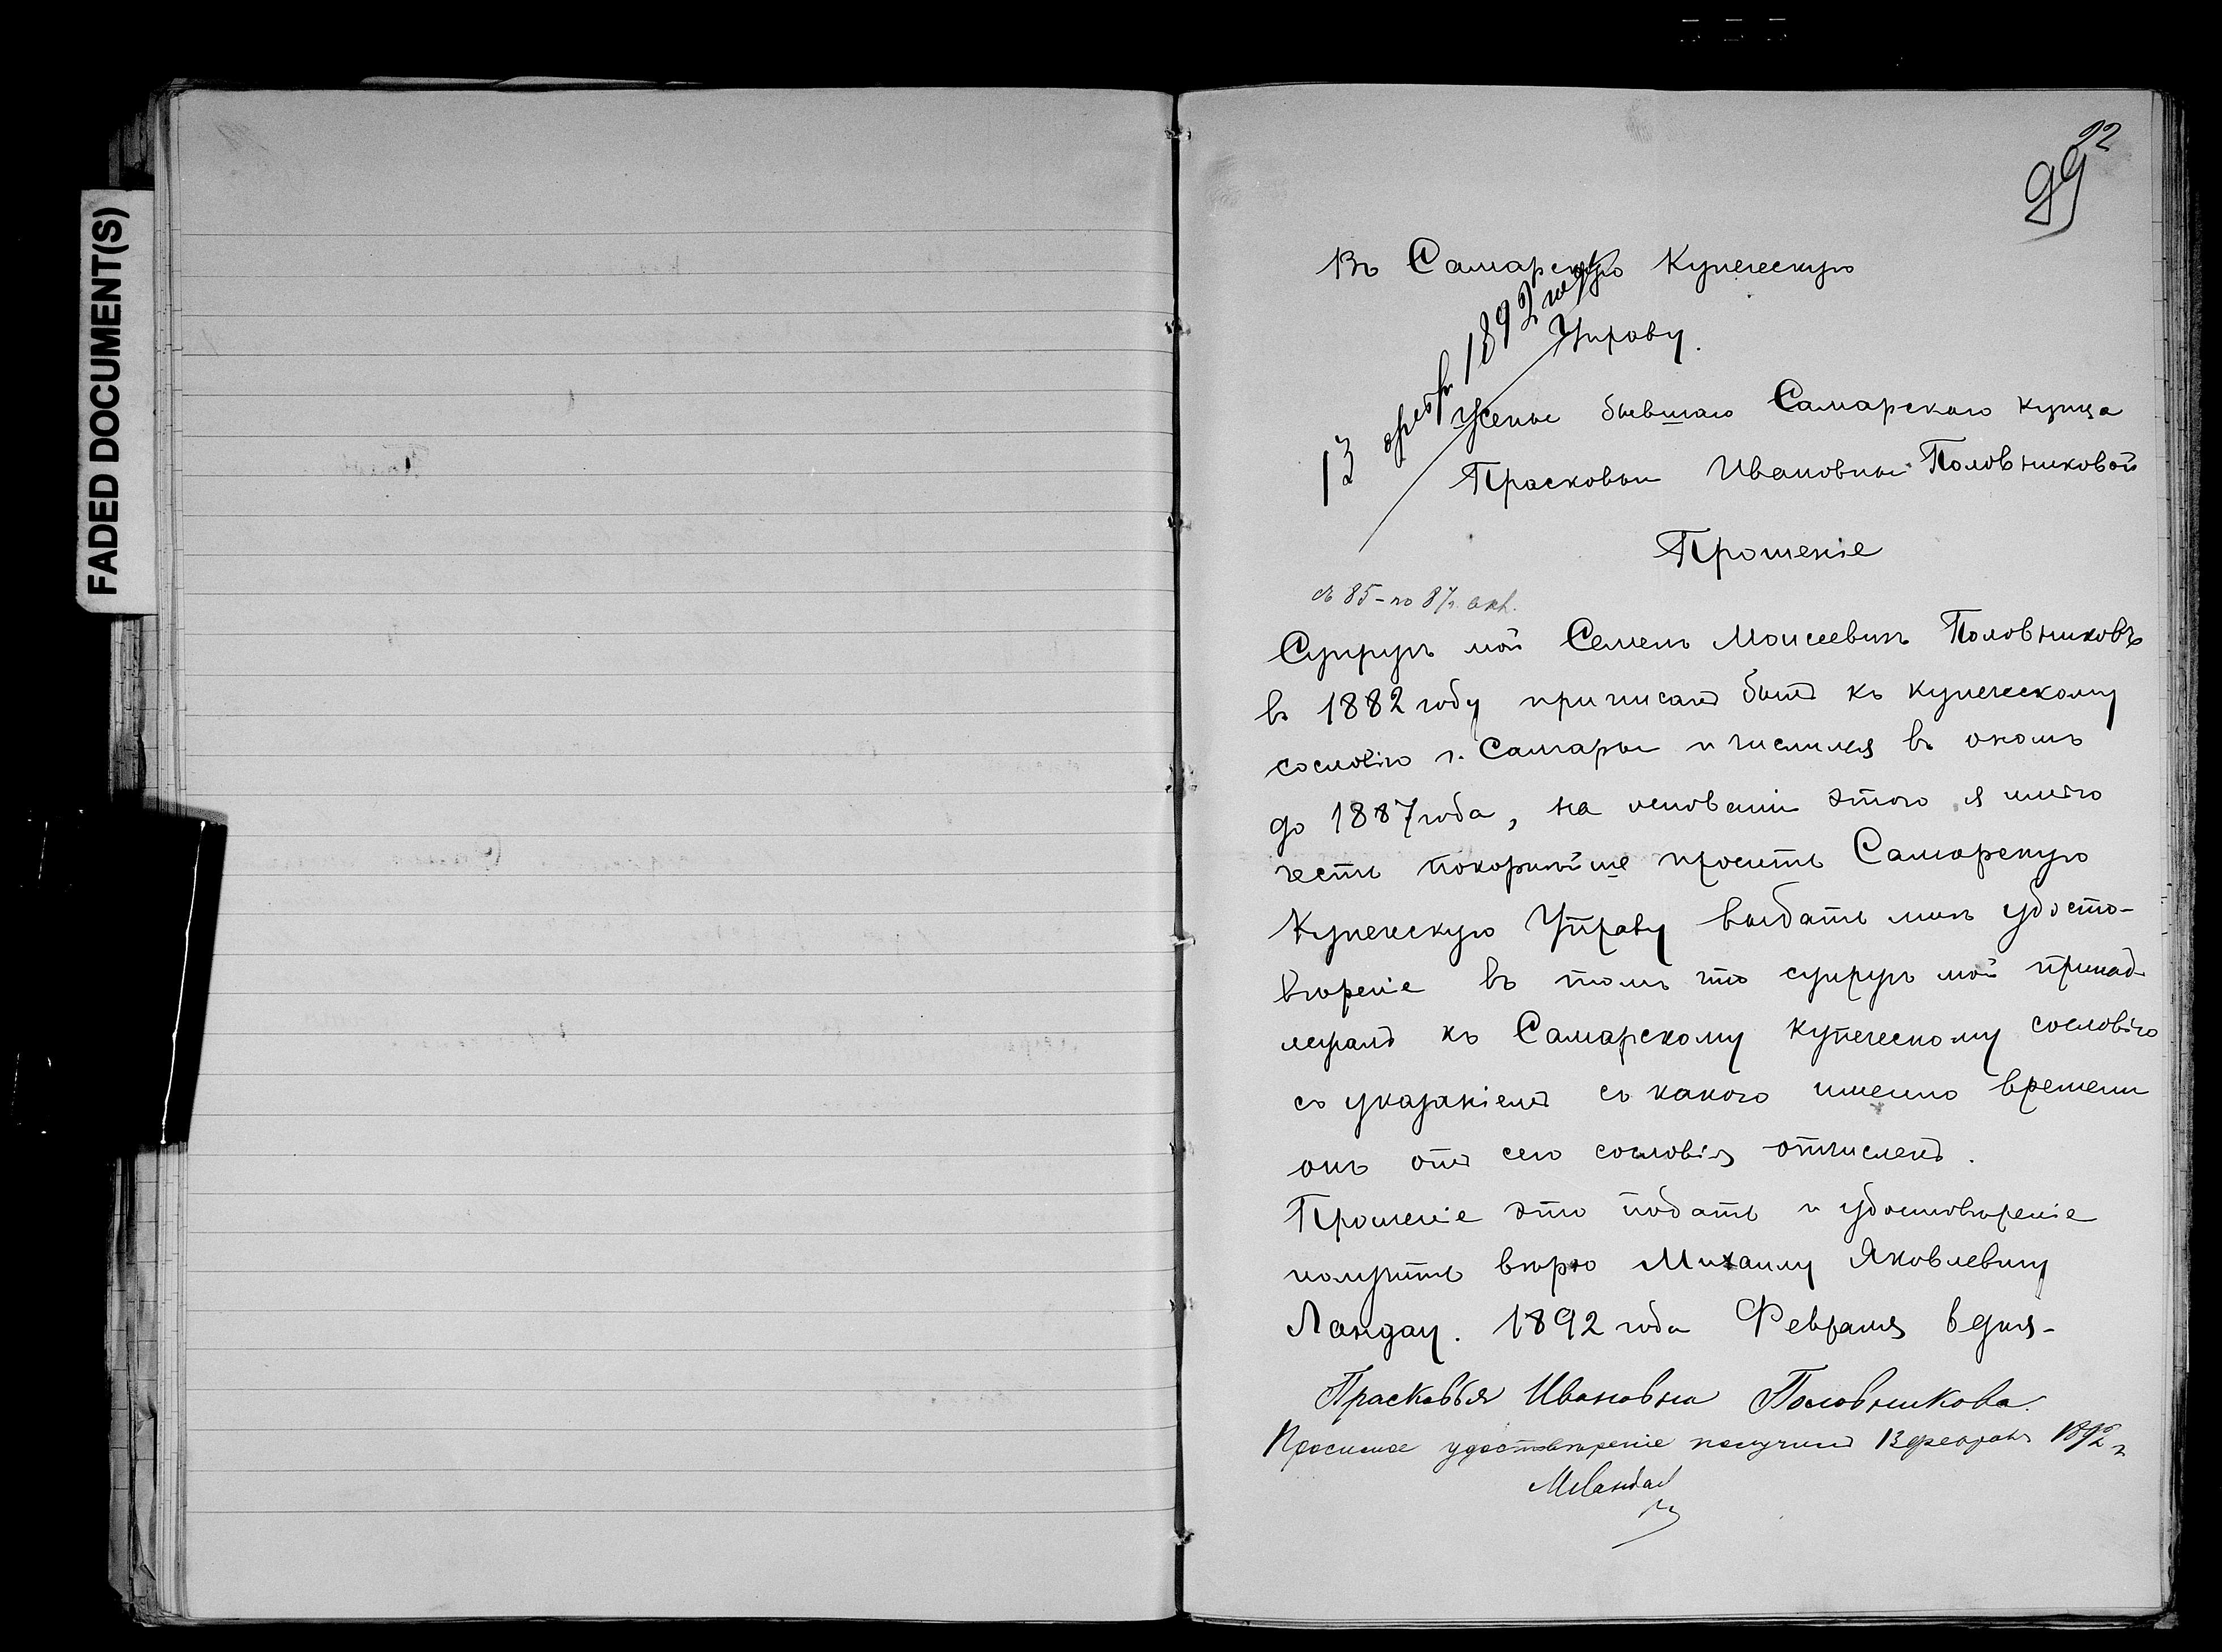 FADED DOCUMENT(S)
92
99
Въ Самарскую Купеческую
Управу.
13 февр 1892 года
Жены бывшаго Самарскаго купца
Прасковьи Ивановны Половниковой
Прошеніе
съ 85 - по 87 г. вкл.
Супругъ мой Семенъ Моисеевичъ Половниковъ
въ 1882 году приписанъ былъ къ купеческому
сословію г. Самары и числился въ ономъ
до 1887 года, на основаніи этого я имѣю
честь покорнѣйше просить Самарскую
Купеческую Управу выдать мнѣ удосто-
вѣреніе въ томъ что супругъ мой принад-
лежалъ къ Самарскому купеческому сословію
съ указаніемъ съ какого именно времени
онъ отъ сего сословія отчисленъ.
Прошеніе это подать и удостовѣреніе
получить вѣрю Михаилу Яковлевичу
Ландау. 1892 года Февраля 8 дня-
Прасковья Ивановна Половникова.
Просимое удостовѣреніе получилъ 13 февраля 1892 г
МЛандау